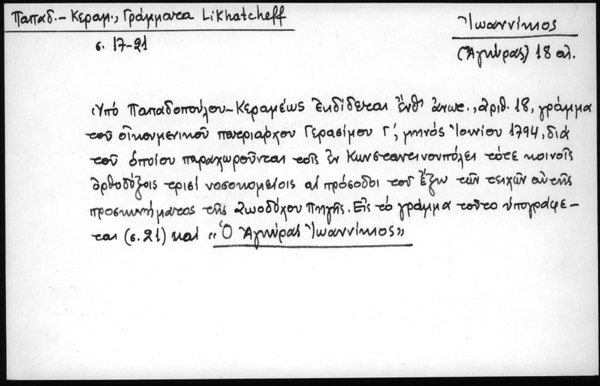 Παπαδ.-Κεραμ., Γράμματα Likhatcheff
σ. 17-21
Ἰωαννίκιος
(Ἀγκύρας) 18 αἰ.
Ὑπὸ Παπαδοπούλου-Κεραμέως ἐκδίδεται ἔνθ' ἀνωτ., ἀριθ. 18, γράμμα
τοῦ οἰκουμενικοῦ πατριάρχου Γερασίμου Γ', μηνὸς Ἰουνίου 1794, διὰ
τοῦ ὁποίου παραχωροῦνται τοῖς ἐν Κωνσταντινουπόλει τότε κοινοῖς
ὀρθοδόξοις τρισὶ νοσοκομείοις αἱ πρόσοδοι τοῦ ἔξω τῶν τειχῶν αὐτῆς
προσκυνήματος τῆς Ζωοδόχου Πηγῆς. Εἰς τὸ γράμμα τοῦτο ὑπογράφε-
ται (σ. 21) καὶ «Ὁ Ἀγκύρας Ἰωαννίκιος»